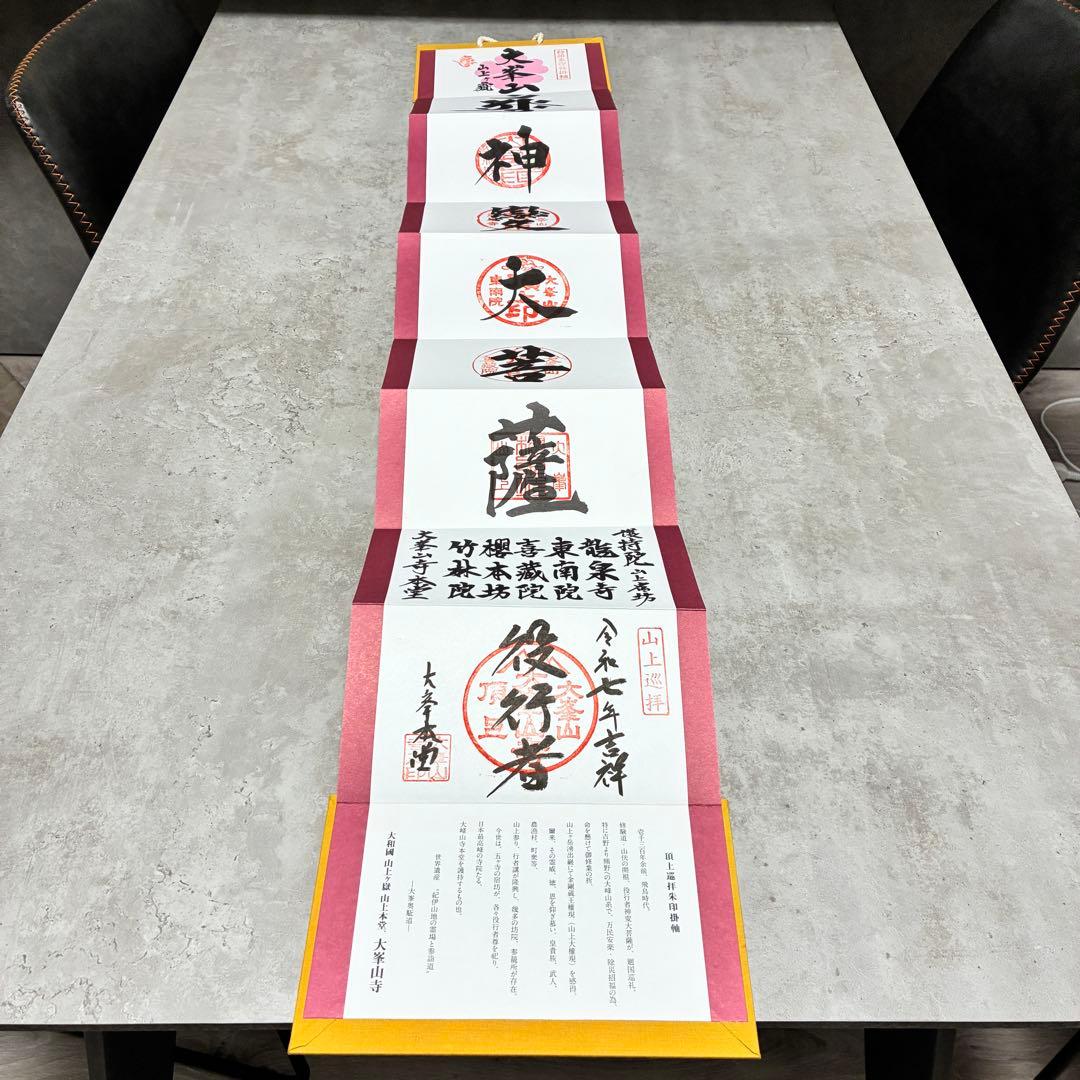 大峯山
山上ヶ嶽
神
變
大
大峯山
東南院
印
菩
薩
護持院 山上宿坊
龍泉寺
東南院
喜蔵院
櫻本坊
竹林院
大峯山寺本堂
山上巡拝
令和七年吉祥
役行者
大峯山
頂上
大峯本堂
頂上巡拝朱印掛軸
壱千三百年余前、飛鳥時代。
修験道・山伏の開祖、役行者神変大菩薩が、廻国巡礼。
特に吉野より熊野への大峰山系で、万民安楽・除災招福の為、
命を懸けて御修業の折、
山上ヶ岳湧出嶽にて金剛蔵王権現（山上大権現）を感得。
爾来、その霊威、徳、恩を仰ぎ慕い、皇貴族、武人、
農漁村、町衆等、
山上参り、行者講が隆興し、幾多の坊院、参籠所が存在。
今世は、五ヶ寺の宿坊が、各々役行者尊を祀り、
日本最高峰の寺院たる、
大峰山寺本堂を護持するもの也。
世界遺産 “紀伊山地の霊場と参詣道”
―大峯奥駈道―
大和國 山上ヶ嶽 山上本堂。 大峯山寺